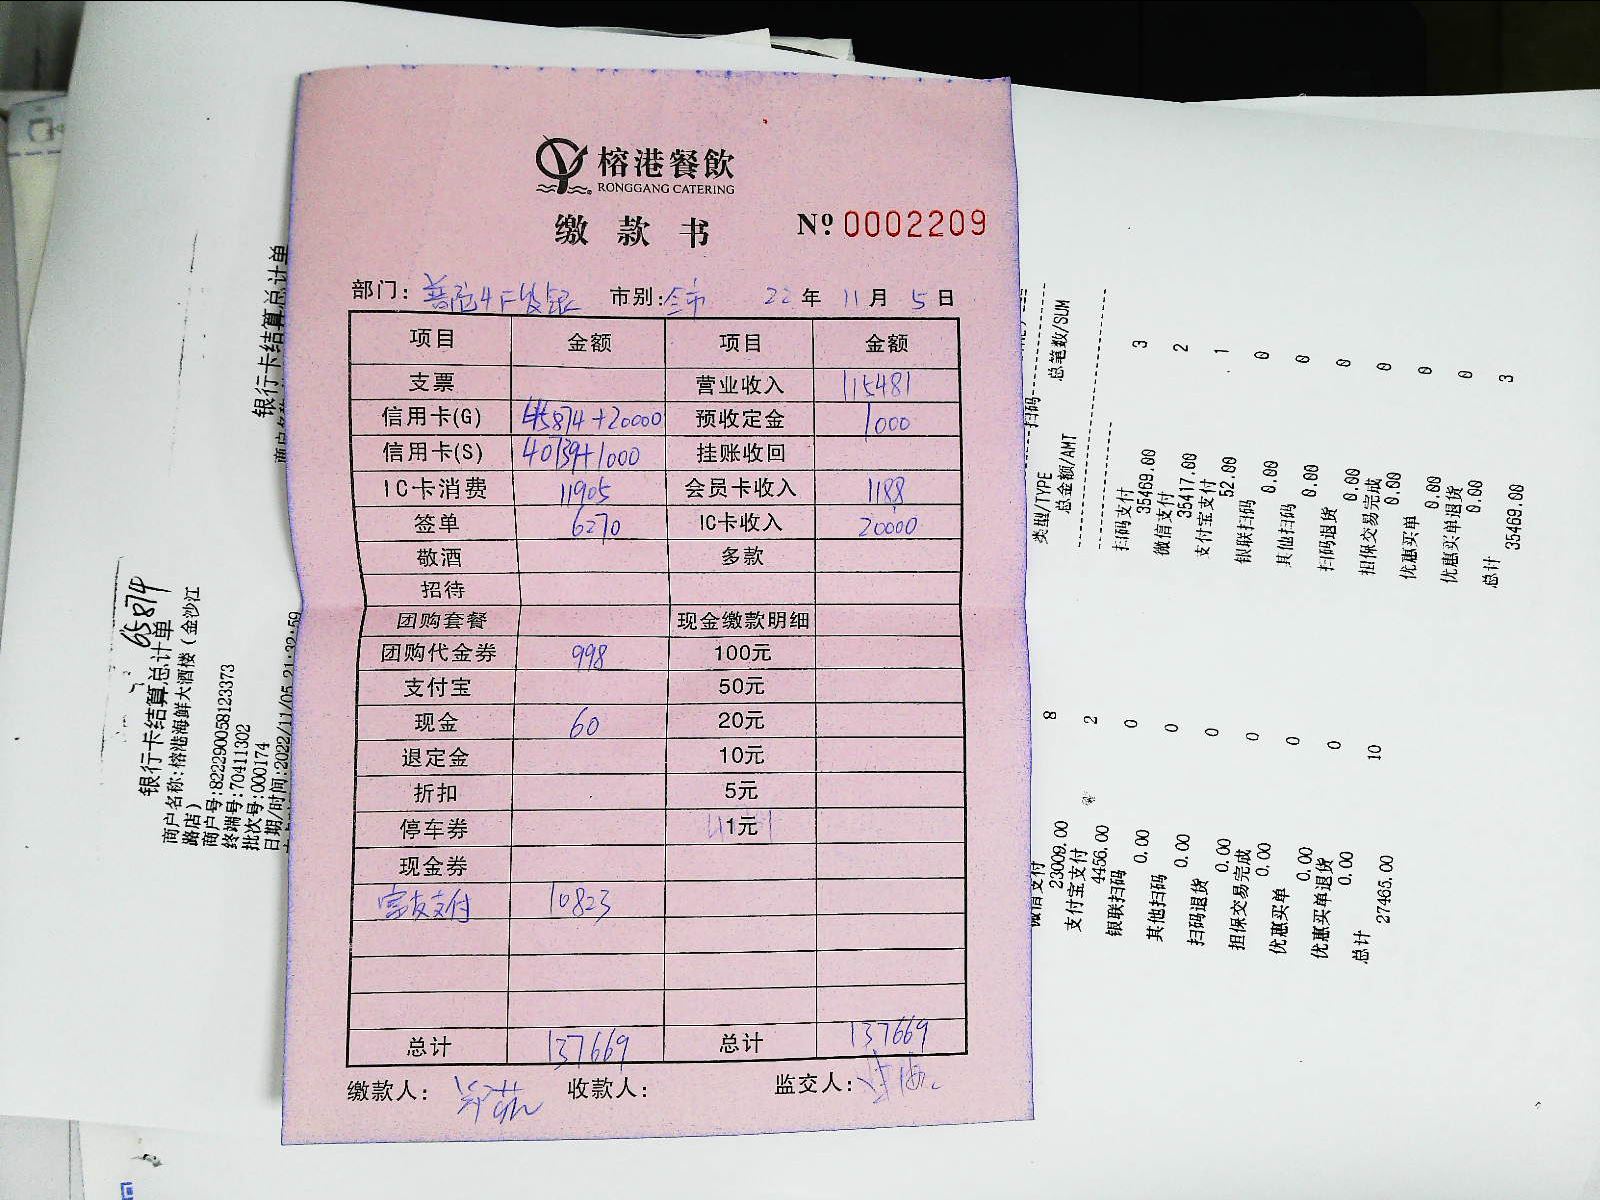 榕港餐飲
RONGGANG CATERING
缴款书
Nº 0002209
部门: 普陀4F收银 市别: 全市 22年11月5日
项目 金额 项目 金额
支票 营业收入 115481
信用卡(G) 45874+20000 预收定金 1000
信用卡(S) 40739+1000 挂账收回
IC卡消费 11905 会员卡收入 1188
签单 6270 IC卡收入 20000
敬酒 多款
招待
团购套餐 现金缴款明细
团购代金券 998 100元
支付宝 50元
现金 60 20元
退定金 10元
折扣 5元
停车券 1元
现金券
支付 10823
总计 137669 总计 137669
缴款人: 收款人: 监交人:
银行卡结算总计单
65874
银行卡结算总计单
商户名称:榕港海鲜大酒楼(金沙江
路店)
商户号:822290058123373
终端号:70411302
批次号:000174
日期/时间:2022/11/05 21:32:59
扫码
类型/TYPE 总笔数/SUM
总金额/AMT
扫码支付 3
35469.00
微信支付 2
35417.00
支付宝支付 1
52.00
银联扫码 0
0.00
其他扫码 0
0.00
扫码退货 0
0.00
担保交易完成 0
0.00
优惠买单 0
0.00
优惠买单退货 0
0.00
总计 3
35469.00
微信支付 8
23009.00
支付宝支付 2
4456.00
银联扫码 0
0.00
其他扫码 0
0.00
扫码退货 0
0.00
担保交易完成 0
0.00
优惠买单 0
0.00
优惠买单退货 0
0.00
总计 10
27465.00